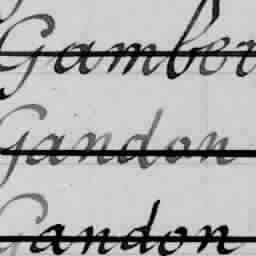 Gamber
Gandon
Gandon